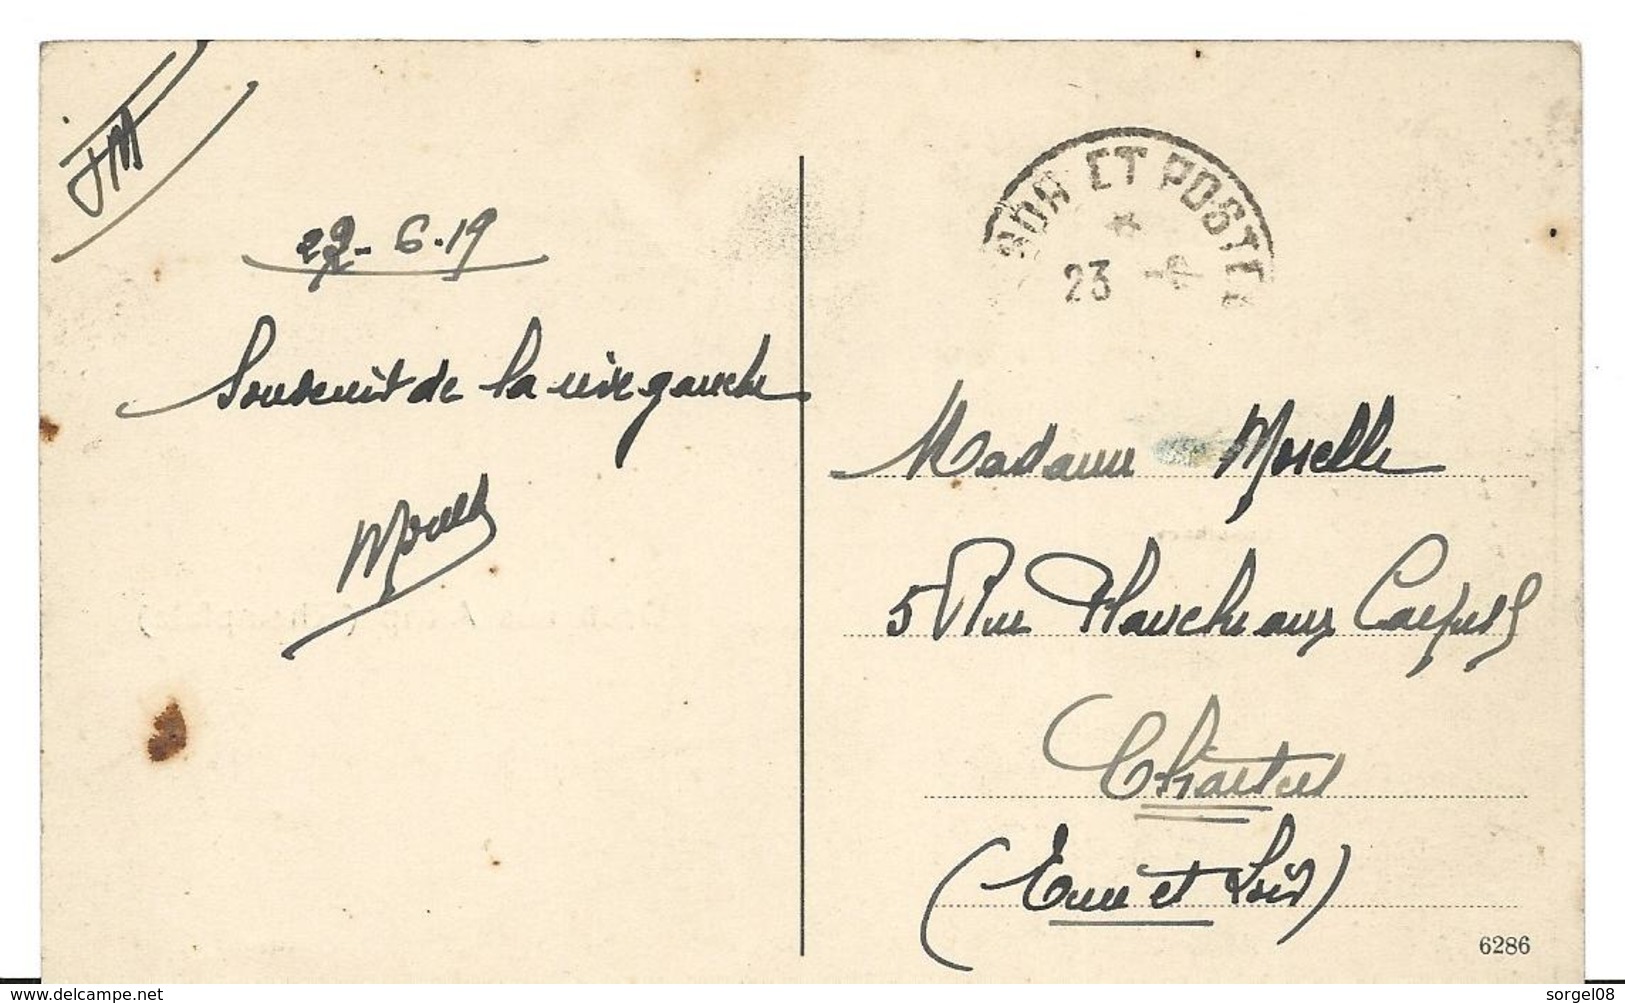 JM
22-6.19
Souvenir de la rive gauche
Morelle
SOR ET POSTE
23
Madame Morelle
5 Rue Planche aux Carpes
Chartres
(Eure et Loir)
6286
www.delcampe.net
sorgel08